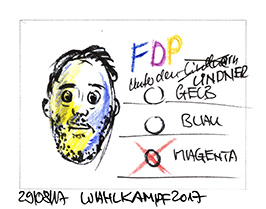 FDP
Unter den
LINDNER
GELB
BLAU
MAGENTA
29/08/17 WAHLKAMPF 2017